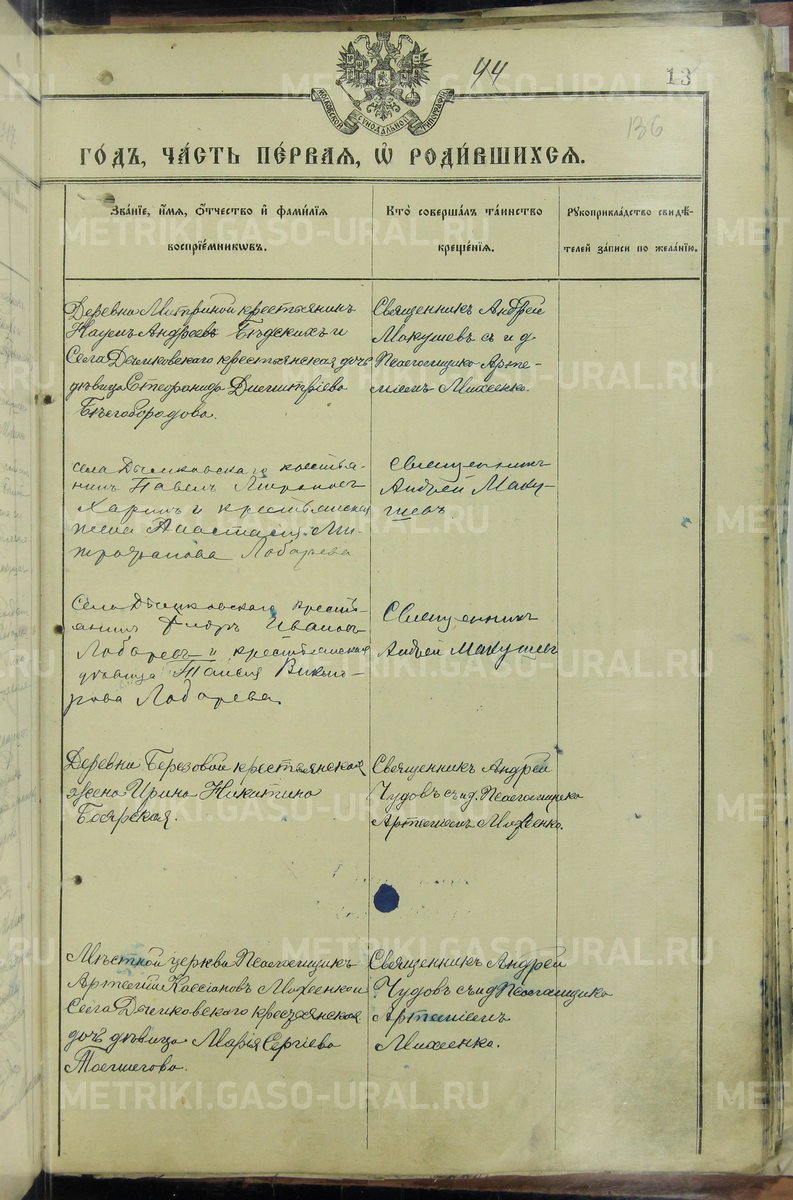 44
13
136
МОСКОВСКОЙ СѴНОДАЛЬНОЙ ТИПОГРАФІИ
ГО́ДЪ, ЧА́СТЬ ПЕ́РВАЯ, Ѡ҆ РОДИ́ВШИХСЯ.
Зва́нїе, и҆́мя, ѻ҆́тчество и҆ фами́лїя
воспрїе́мникωвъ.
Кто̀ соверша́лъ та́инство
креще́нїя.
Рꙋкоприкла́дство свидѣ́-
телей за́писи по жела́нїю.
Деревни Митриной крестьянинъ
Наумъ Андреевъ Бѣдскихъ и
Села Дымковскаго крестьянская дочь
дѣвица Стефанида Димитріева
Бѣлобородова.
Священникъ Андрей
Макушев с и д.
Псаломщика Арте-
міемъ Михеенко.
Села Дымковскаго крестья-
нинъ Павелъ
Харинъ и крестьянская
жена Анастасия Ми-
трофанова Лобарева
Священникъ
Андрей Маку-
шевъ.
Села Дымковскаго кресть-
янинъ Флоръ Ивановъ
Лобаревъ и крестьянская
дѣвица Таисія Викто-
рова Лобарева.
Священникъ
Андрей Макушев
Деревни Березовой крестьянская
жена Ирина Никитина
Боярская.
Священникъ Андрей
Чудовъ съ и д. Псаломщика
Артеміемъ Михеенко.
Мѣстной церкви Псаломщикъ
Артемій Кассіановъ Михеенко и
Села Дымковскаго крестьянская
дочь дѣвица Марія Сергіева
Священникъ Андрей
Чудовъ съ и д Псаломщика
Артеміемъ
Михеенко.
METRIKI.GASO-URAL.RU